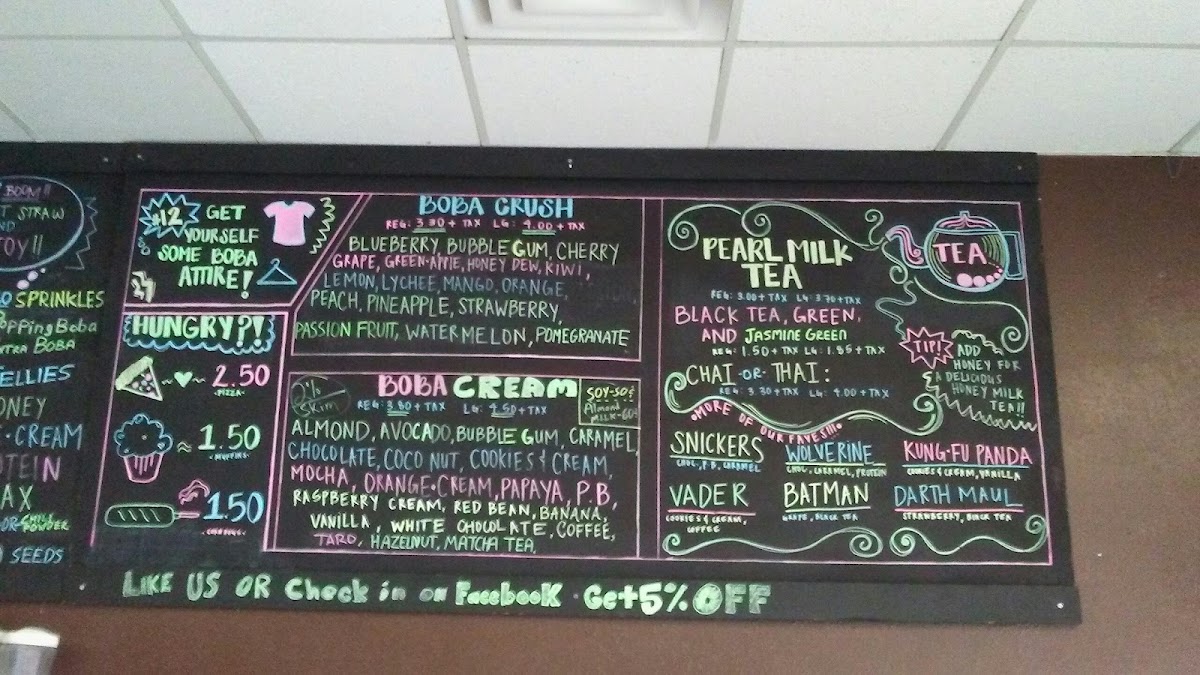 BOOM!!
STRAW
TOY!!
SPRINKLES
Popping Boba
Boba
JELLIES
CREAM
SEEDS
GET
YOURSELF
SOME BOBA
ATTIRE!
HUNGRY?!
2.50
-PIZZA-
1.50
-MUFFINS-
1.50
BOBA CRUSH
REG: 3.30 + TAX LG: 4.00 + TAX
BLUEBERRY, BUBBLE GUM, CHERRY
GRAPE, GREEN-APPLE, HONEY DEW, KIWI,
LEMON, LYCHEE, MANGO, ORANGE,
PEACH, PINEAPPLE, STRAWBERRY,
PASSION FRUIT, WATERMELON, POMEGRANATE
2% Skim
BOBA CREAM
REG: 3.80 + TAX LG: 4.50 + TAX
Almond
MILK-60¢
ALMOND, AVOCADO, BUBBLE GUM, CARAMEL,
CHOCOLATE, COCO NUT, COOKIES & CREAM,
MOCHA, ORANGE-CREAM, PAPAYA, P.B,
RASPBERRY CREAM, RED BEAN, BANANA,
VANILLA, WHITE CHOCOLATE, COFFEE,
TARO, HAZELNUT, MATCHA TEA,
PEARL MILK
TEA
REG: 3.00 + TAX LG 3.70 + TAX
BLACK TEA, GREEN,
AND JASMINE GREEN
REG: 1.50 + TAX LG: 1.85 + TAX
CHAI -OR- THAI:
REG: 3.30 + TAX LG: 4.00 + TAX
TEA
TIP!
ADD
HONEY FOR
A DELICIOUS
HONEY MILK
TEA!!
MORE OF OUR FAVES!!!
SNICKERS
CHOC, P.B, CARAMEL
WOLVERINE
CHOC, CARAMEL, PROTEIN
KUNG-FU PANDA
COOKIES & CREAM, VANILLA
VADER
COOKIES & CREAM,
COFFEE
BATMAN
GRAPE, BLACK TEA
DARTH MAUL
STRAWBERRY, BLACK TEA
LIKE US OR Check in on Facebook · Get 5% OFF